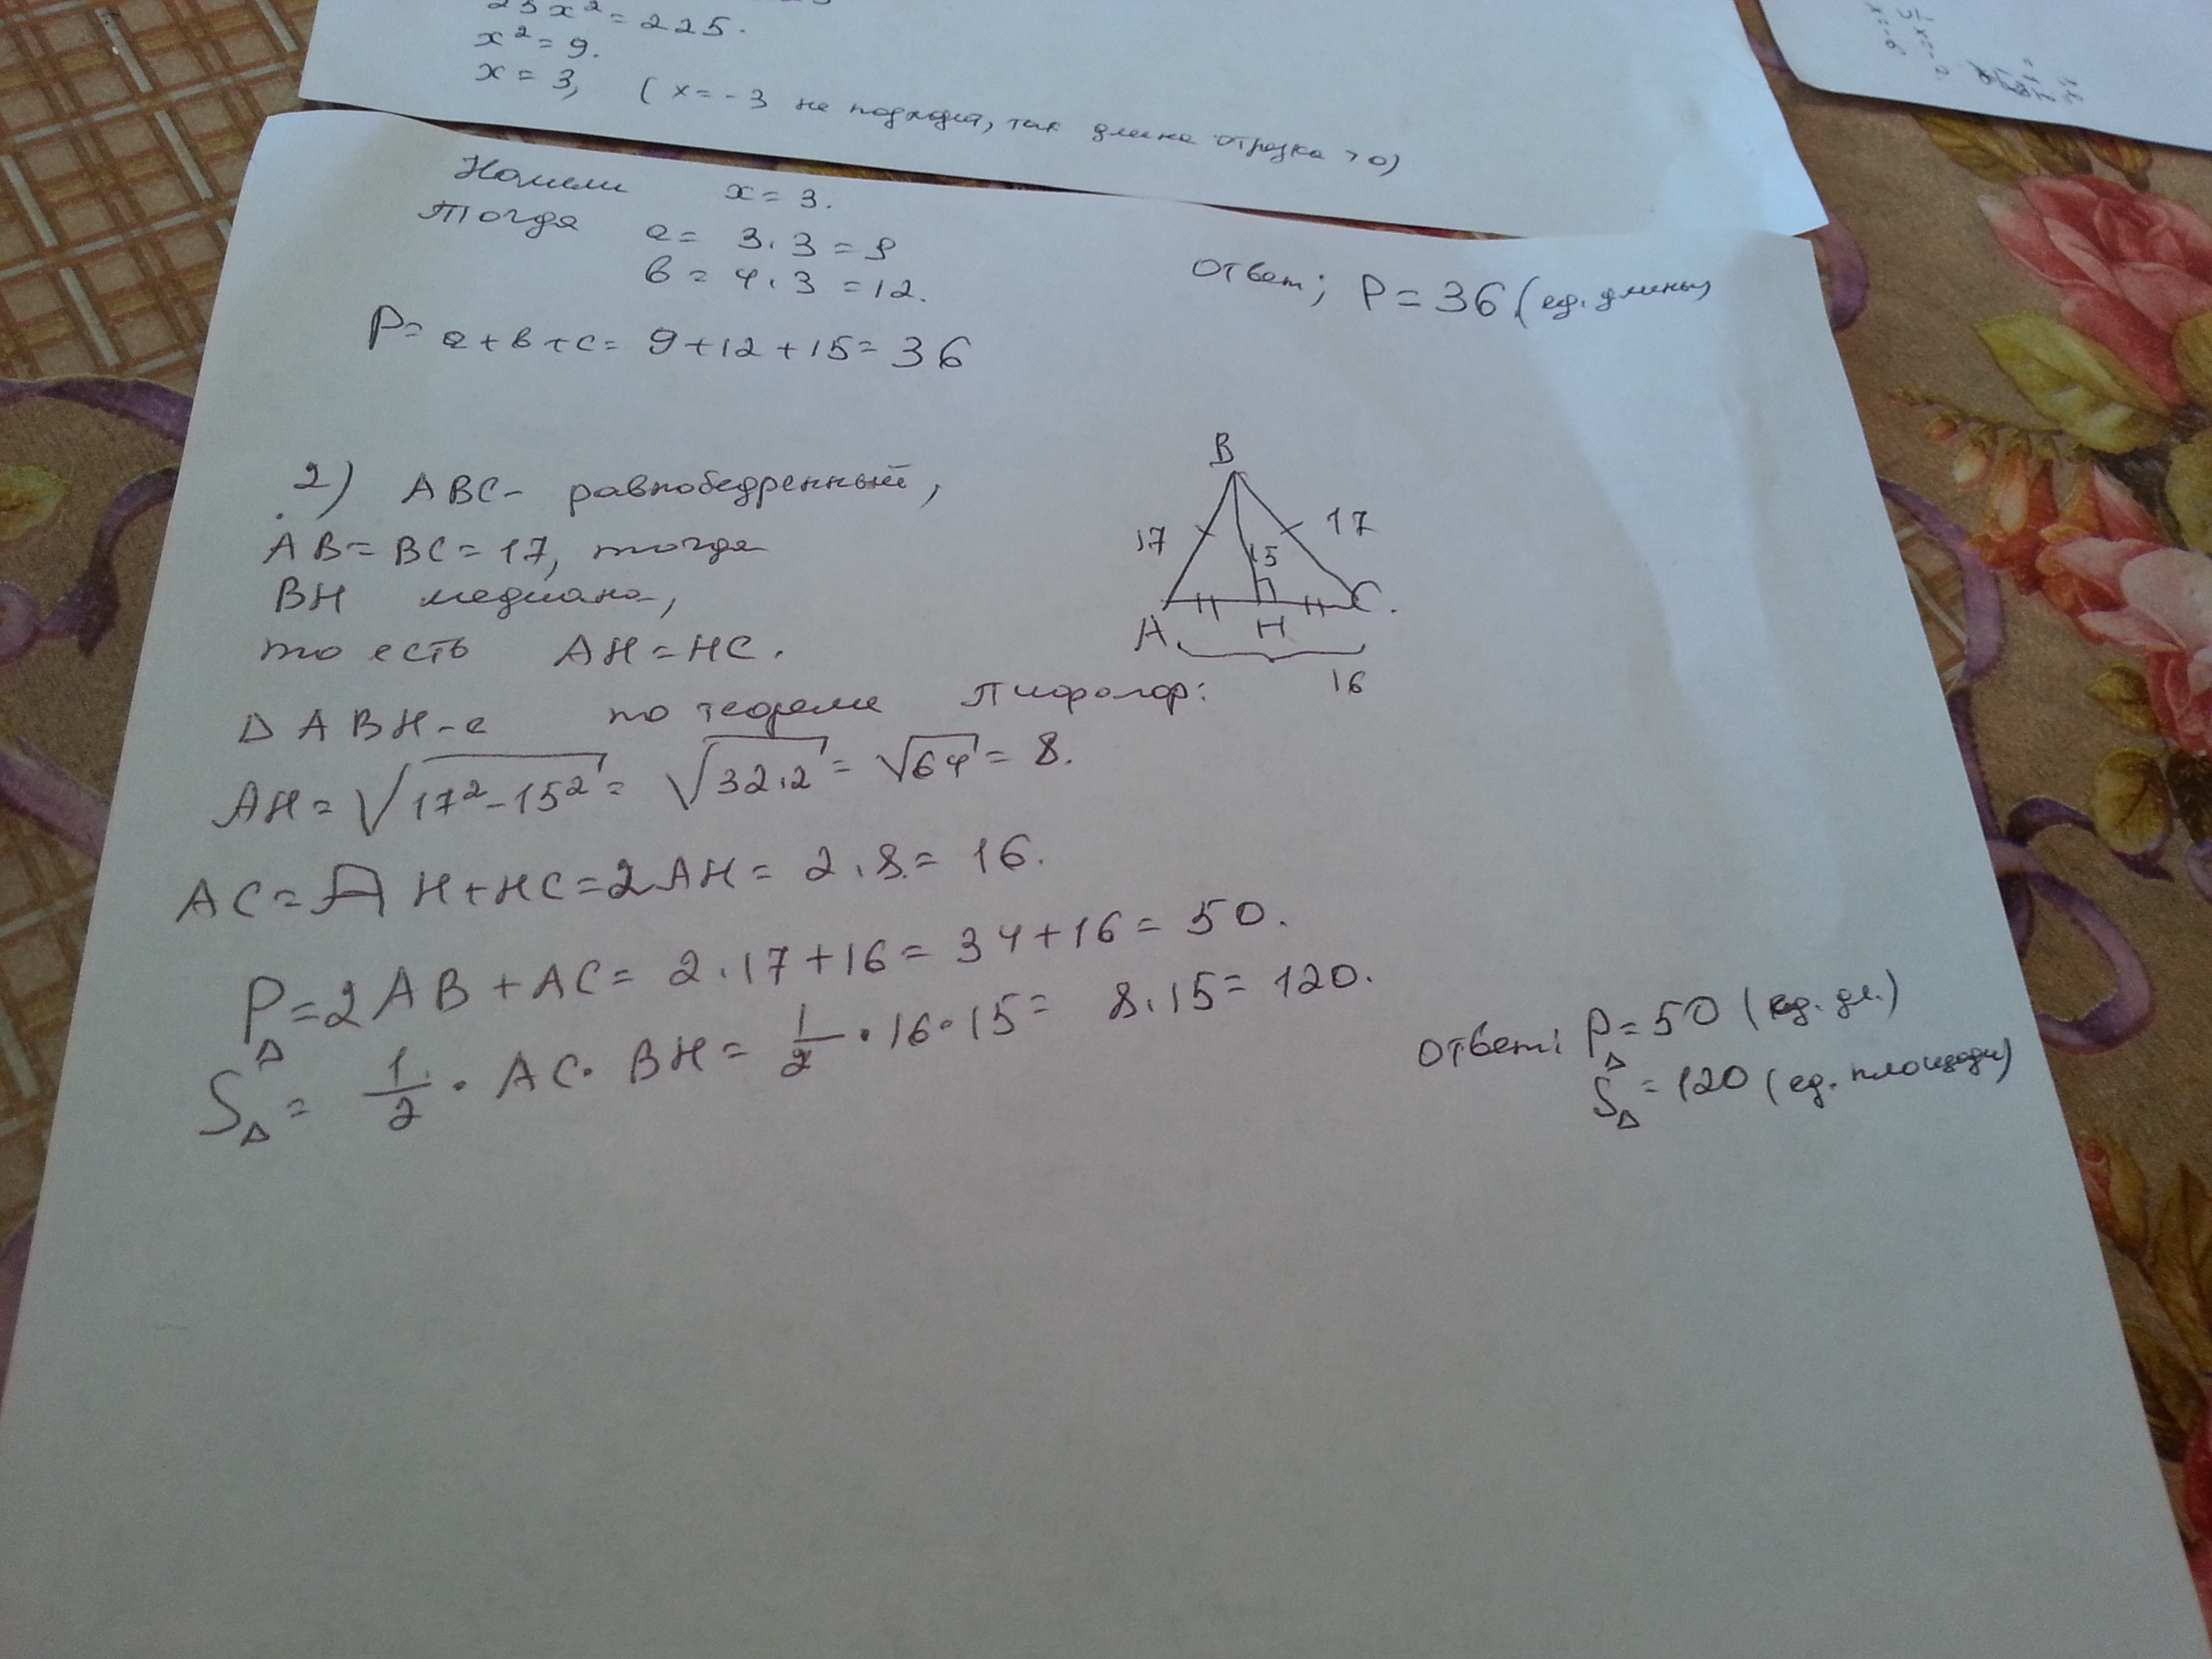 25x² = 225.
x² = 9.
x = 3, ( x = -3 не подходит, так длина отрезка > 0)
Нашли x = 3.
Тогда a = 3·3 = 9
b = 4·3 = 12.
Ответ; P = 36 (ед. длины)
P = a + b + c = 9 + 12 + 15 = 36
2) ABC - равнобедренный,
AB = BC = 17, тогда
BH медиана,
то есть AH = HC.
B
17
17
15
A
H
C.
16
Δ ABH - с по теореме Пифагор:
AH = √17² - 15² = √32·2 = √64 = 8.
AC = AH + HC = 2AH = 2·8 = 16.
P△ = 2AB + AC = 2·17 + 16 = 34 + 16 = 50.
S△ = 1/2 · AC · BH = 1/2 · 16 · 15 = 8·15 = 120.
Ответ: P△ = 50 (ед. дл.)
S△ = 120 (ед. площади)